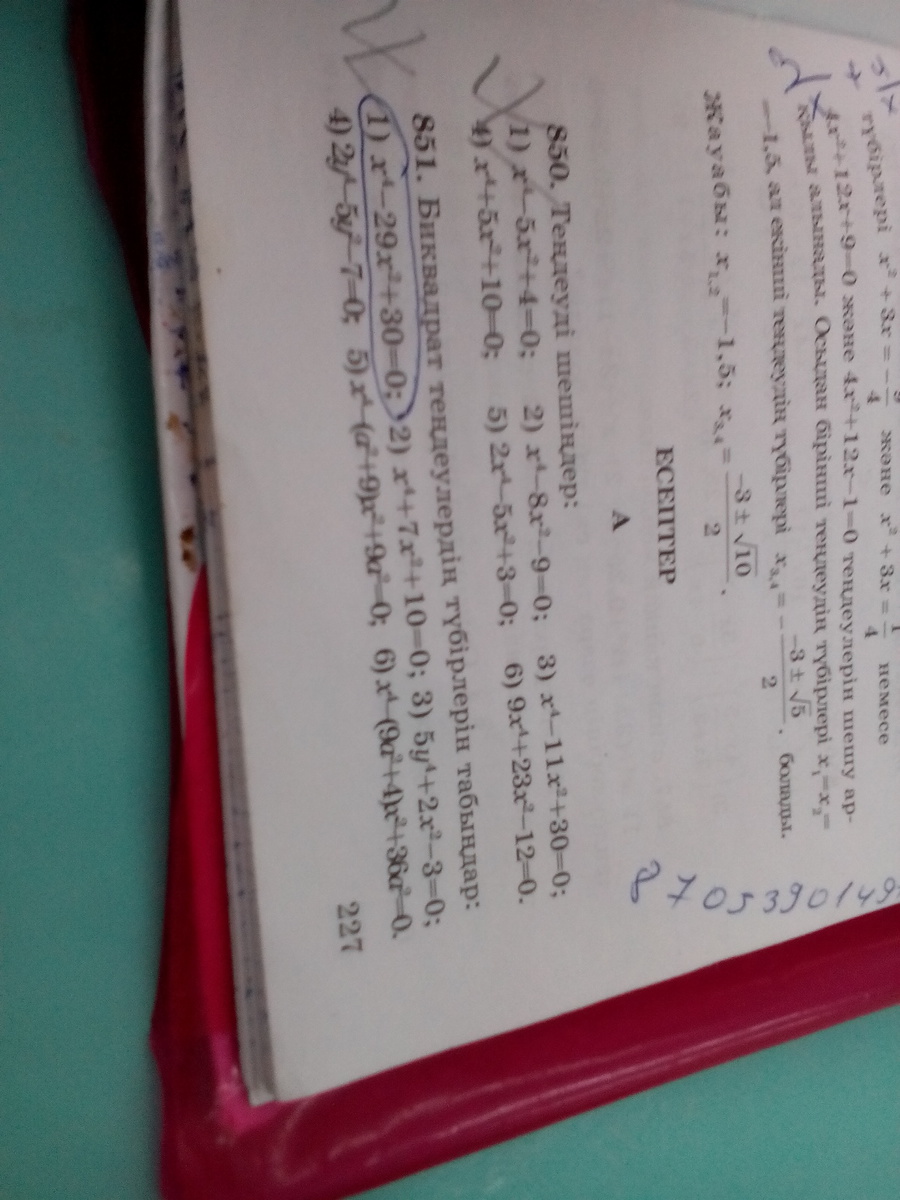 түбірлері x² + 3x = -9/4 және x² + 3x = 1/4 немесе
4x²+12x+9=0 және 4x²+12x-1=0 теңдеулерін шешу ар-
қылы алынады. Осыдан бірінші теңдеудің түбірлері x₁=x₂=
-1,5, ал екінші теңдеудің түбірлері x₃,₄ = - (-3 ± √5)/2 . болады.
Жауабы: x₁,₂ =-1,5; x₃,₄ = (-3 ± √10)/2 .
8705390149
ЕСЕПТЕР
А
850. Теңдеуді шешіңдер:
1) x⁴-5x²+4=0; 2) x⁴-8x²-9=0; 3) x⁴-11x²+30=0;
4) x⁴+5x²+10=0; 5) 2x⁴-5x²+3=0; 6) 9x⁴+23x²-12=0.
851. Биквадрат теңдеулердің түбірлерін табыңдар:
1) x⁴-29x²+30=0; 2) x⁴+7x²+10=0; 3) 5y⁴+2x²-3=0;
4) 2y⁴-5y²-7=0; 5) x⁴-(a²+9)x²+9a²=0; 6) x⁴-(9a²+4)x²+36a²=0.
227